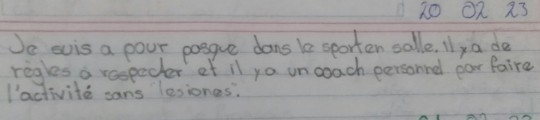 20 02 23
Je suis a pour posque dans le sporten salle. il ya de
règles a respecter et il ya un coach personnel por faire
l'activité sans lesiones.